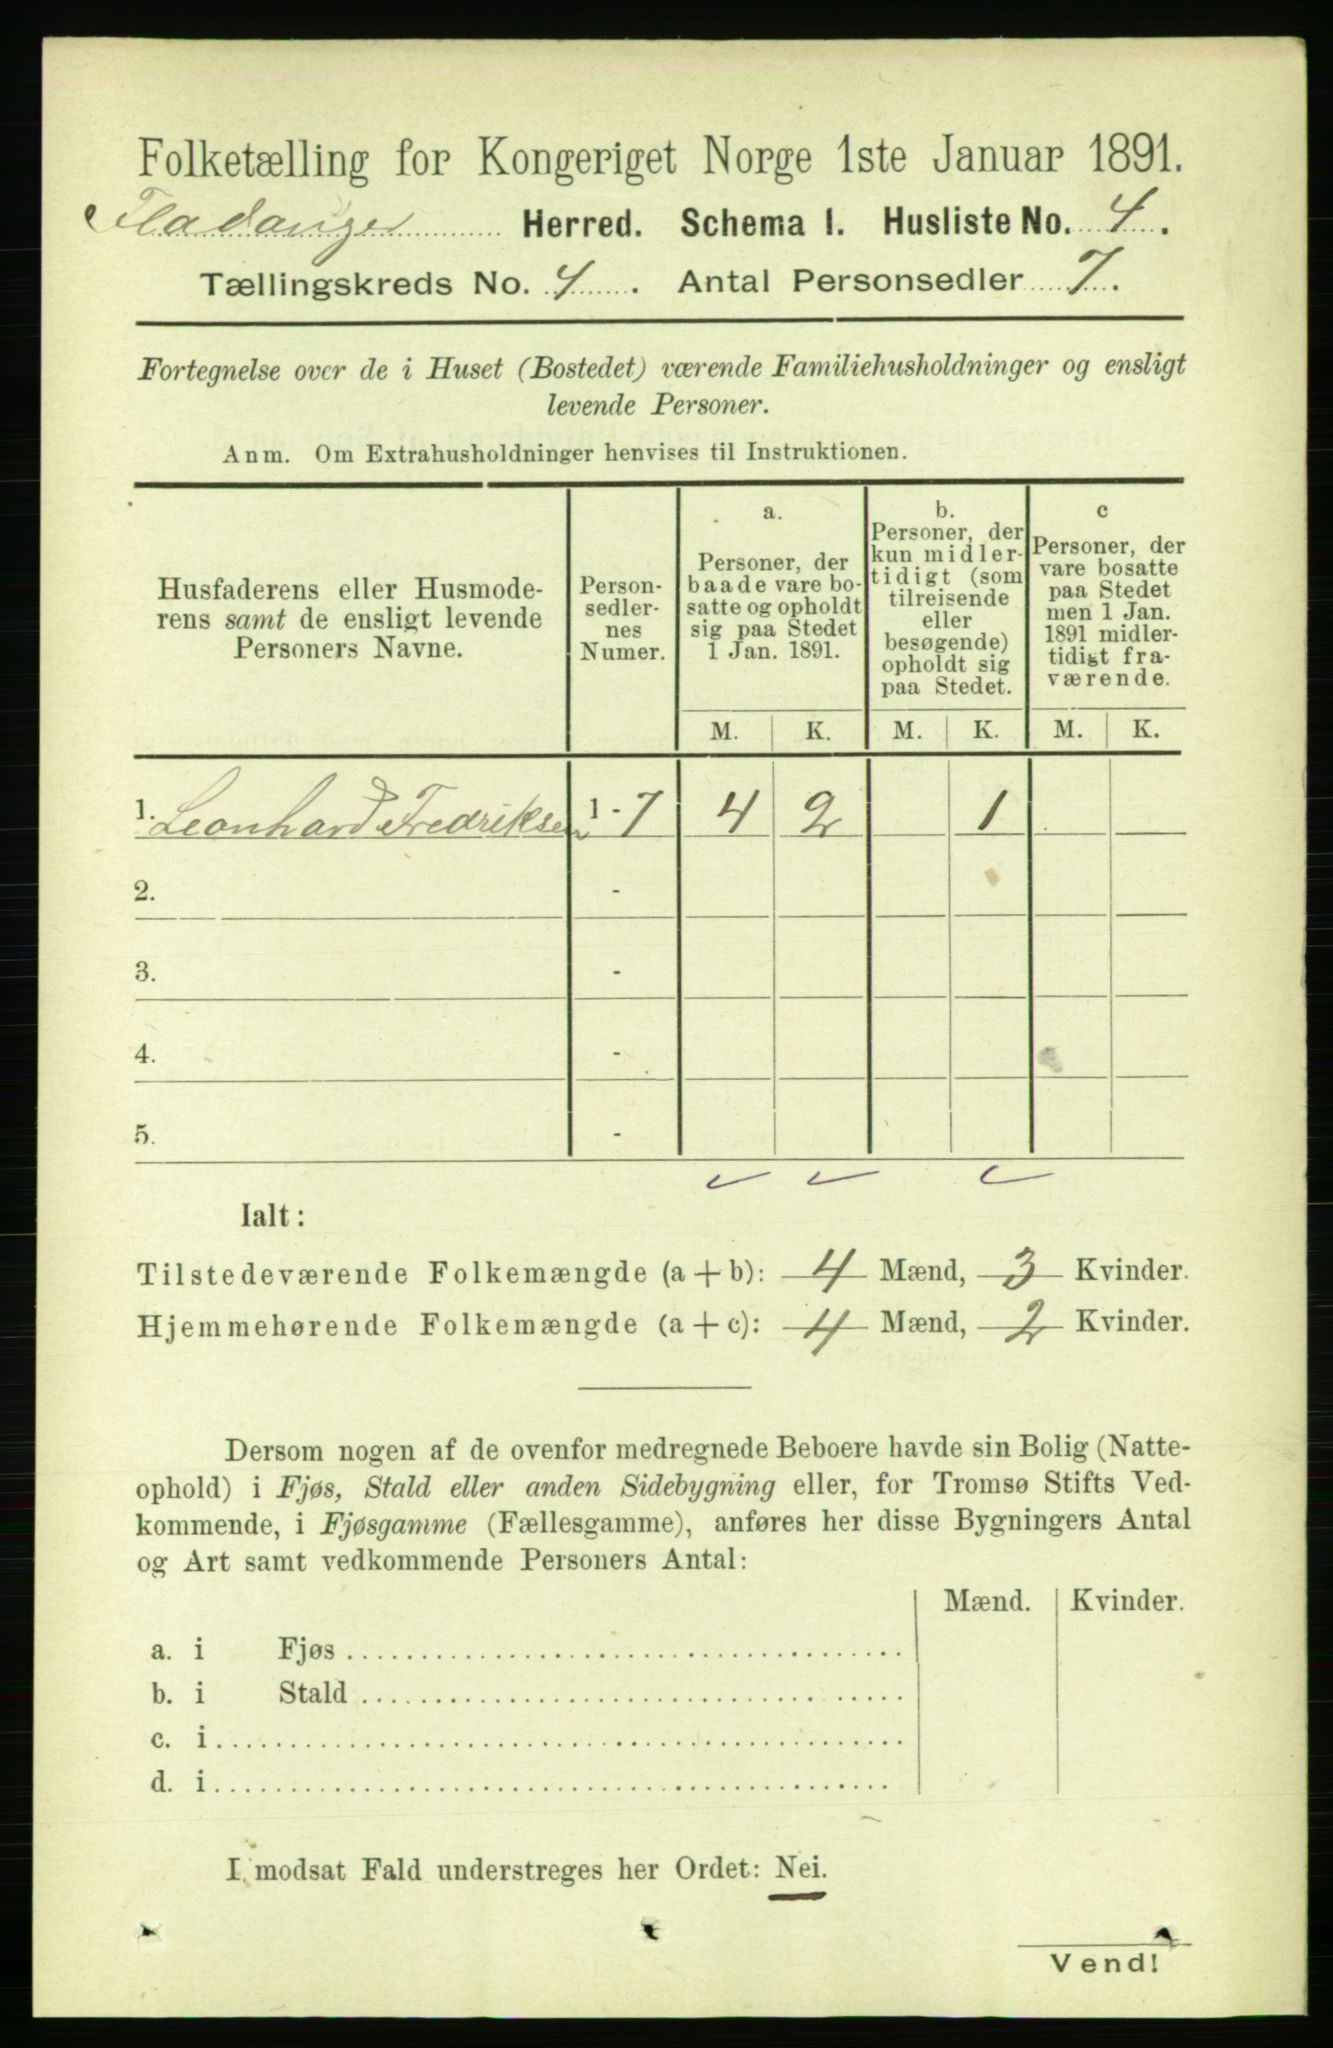 Folketælling for Kongeriget Norge 1ste Januar 1891.
Fladanger Herred. Schema I. Husliste No. 4.
Tællingskreds No. 4. Antal Personsedler 7.
Fortegnelse over de i Huset (Bostedet) værende Familiehusholdninger og ensligt
levende Personer.
Anm. Om Extrahusholdninger henvises til Instruktionen.
Husfaderens eller Husmode-
rens samt de ensligt levende
Personers Navne.
Person-
sedler-
nes
Numer.
a.
Personer, der
baade vare bo-
satte og opholdt
sig paa Stedet
1 Jan. 1891.
b.
Personer, der
kun midler-
tidigt (som
tilreisende
eller
besøgende)
opholdt sig
paa Stedet.
c
Personer, der
vare bosatte
paa Stedet
men 1 Jan.
1891 midler-
tidigt fra-
værende.
M. K. M. K. M. K.
1. Leonhard Fredriksen 1 - 7 4 2 1
2. -
3. -
4. -
5. -
Ialt:
Tilstedeværende Folkemængde (a + b): 4 Mænd, 3 Kvinder.
Hjemmehørende Folkemængde (a + c): 4 Mænd, 2 Kvinder.
Dersom nogen af de ovenfor medregnede Beboere havde sin Bolig (Natte-
ophold) i Fjøs, Stald eller anden Sidebygning eller, for Tromsø Stifts Ved-
kommende, i Fjøsgamme (Fællesgamme), anføres her disse Bygningers Antal
og Art samt vedkommende Personers Antal:
Mænd. Kvinder.
a. i Fjøs
b. i Stald
c. i
d. i
I modsat Fald understreges her Ordet: Nei.
Vend!